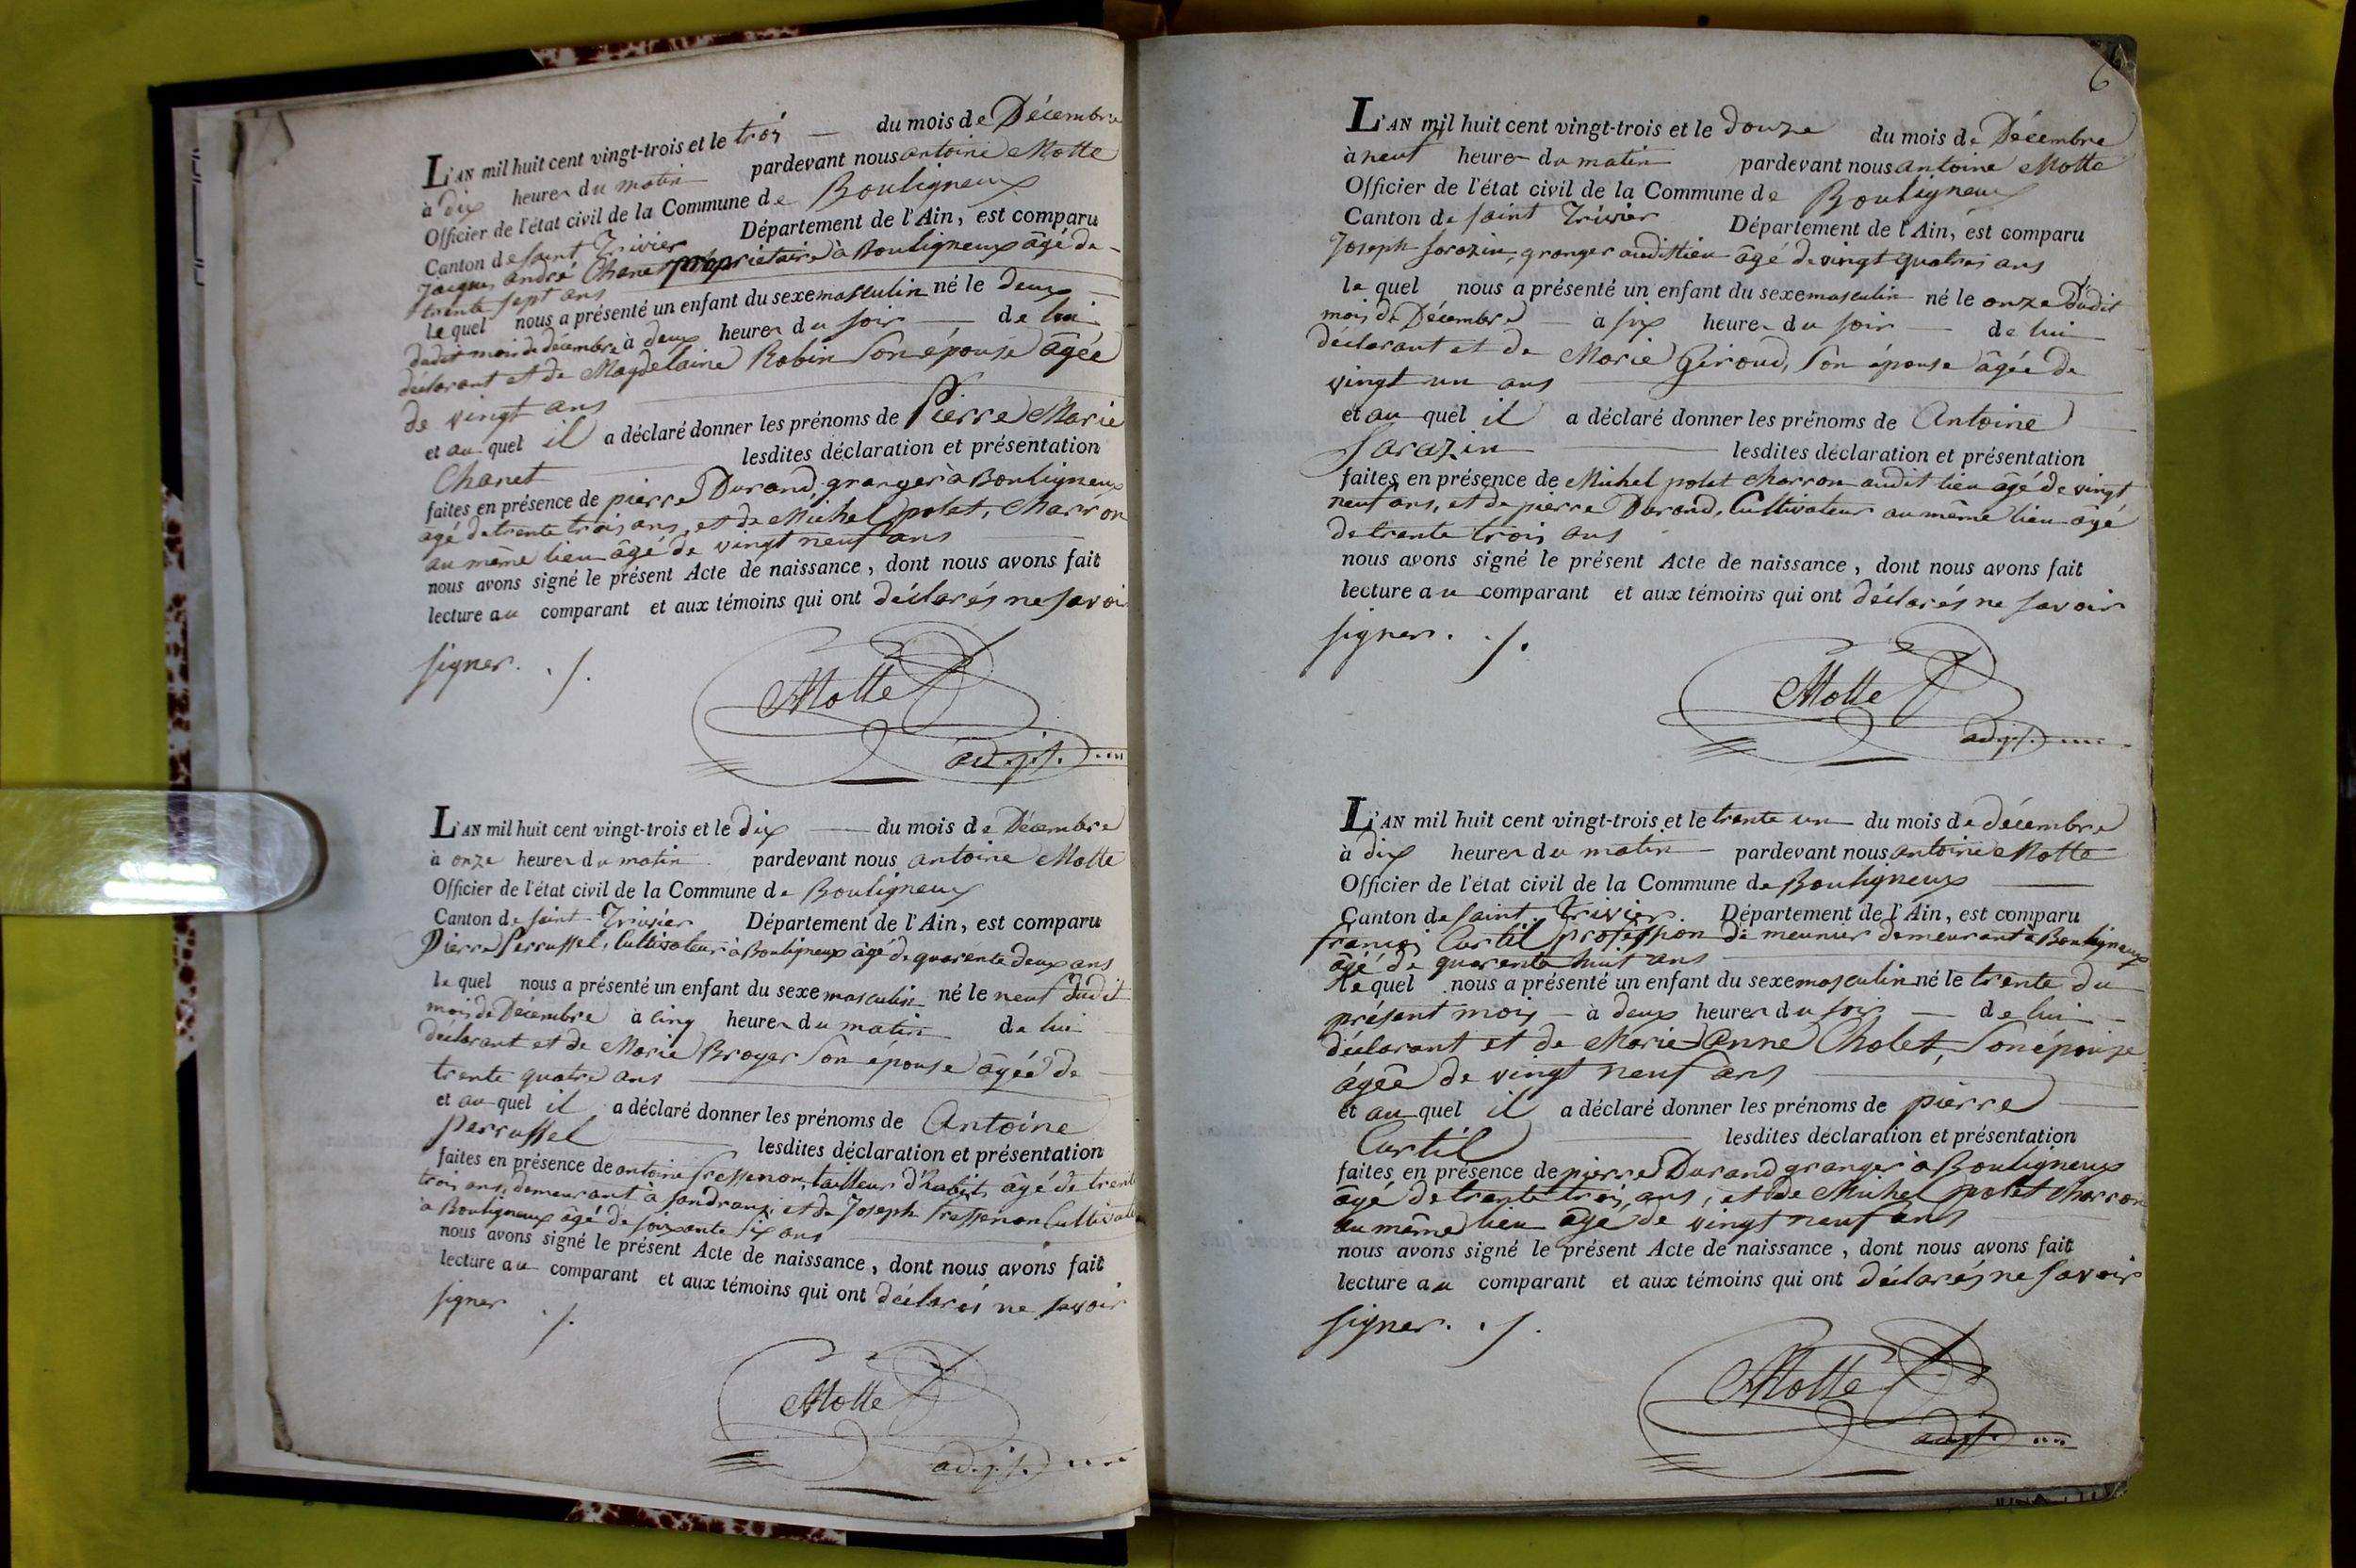 L'AN mil huit cent vingt-trois et le trois du mois de Décembre
à dix heures du matin pardevant nous antoine Motte
Officier de l'état civil de la Commune de Bouligneux
Canton de saint Trivier Département de l'Ain, est comparu
Jacques andré Chanet propriétaire à Bouligneux âgé de
trente sept ans
le quel nous a présenté un enfant du sexe masculin né le deux
dudit mois de décembre à deux heures du soir de lui
déclarant et de Magdelaine Robin son épouse âgée
de vingt ans
et au quel il a déclaré donner les prénoms de Pierre Marie
Chanet lesdites déclaration et présentation
faites en présence de pierre Durand, granger à Bouligneux
âgé de trente trois ans, et de Michel polet, Charron
au même lieu âgé de vingt neuf ans
nous avons signé le présent Acte de naissance, dont nous avons fait
lecture au comparant et aux témoins qui ont déclarés ne savoir
signer. ./.
Motte
adjt.
L'AN mil huit cent vingt-trois et le dix du mois de Décembre
à onze heures du matin pardevant nous antoine Motte
Officier de l'état civil de la Commune de Bouligneux
Canton de saint Trivier Département de l'Ain, est comparu
Pierre Perrussel, Cultivateur à Bouligneux âgé de quarente deux ans
le quel nous a présenté un enfant du sexe masculin né le neuf dudit
mois de Décembre à cinq heures du matin de lui
déclarant et de Marie Broyer son épouse âgée de
trente quatre ans
et au quel il a déclaré donner les prénoms de Antoine
Perrussel lesdites déclaration et présentation
faites en présence de antoine fressenon, tailleur d'habits âgé de trente
trois ans, demeurant à sandrans, et de Joseph fressenon Cultivateur
à Bouligneux âgé de soixante six ans
nous avons signé le présent Acte de naissance, dont nous avons fait
lecture au comparant et aux témoins qui ont déclarés ne savoir
signer ./.
Motte
adjt.
6
L'AN mil huit cent vingt-trois et le douze du mois de Décembre
à neuf heures du matin pardevant nous antoine Motte
Officier de l'état civil de la Commune de Bouligneux
Canton de saint Trivier Département de l'Ain, est comparu
Joseph Sarazin, granger audit lieu âgé de vingt quatres ans
le quel nous a présenté un enfant du sexe masculin né le onze dudit
mois de Décembre à six heures du soir de lui
déclarant et de Marie Giroud, son épouse âgée de
vingt un ans
et au quel il a déclaré donner les prénoms de Antoine
Sarazin lesdites déclaration et présentation
faites en présence de Michel polet charron audit lieu agé de vingt
neuf ans, et de pierre Durand, Cultivateur au même lieu âgé
de trente trois ans
nous avons signé le présent Acte de naissance, dont nous avons fait
lecture au comparant et aux témoins qui ont déclarés ne savoir
signer. ./.
Motte
adjt.
L'AN mil huit cent vingt-trois et le trente un du mois de décembre
à dix heures du matin pardevant nous antoine Motte
Officier de l'état civil de la Commune de Bouligneux
Canton de saint Trivier. Département de l'Ain, est comparu
françois Curtil profession de meunier demeurant à Bouligneux
âgé de quarente huit ans
le quel nous a présenté un enfant du sexe masculin né le trente du
présent mois à deux heures du soir de lui
déclarant et de Marie Anne Cholet, son épouse
âgée de vingt neuf ans
et au quel il a déclaré donner les prénoms de pierre
Curtil lesdites déclaration et présentation
faites en présence de pierre Durand granger à Bouligneux
âgé de trente trois ans, et de Michel polet charron
au même lieu âgé de vingt neuf ans
nous avons signé le présent Acte de naissance, dont nous avons fait
lecture au comparant et aux témoins qui ont déclarés ne savoir
signer. ./.
Motte
adjt.